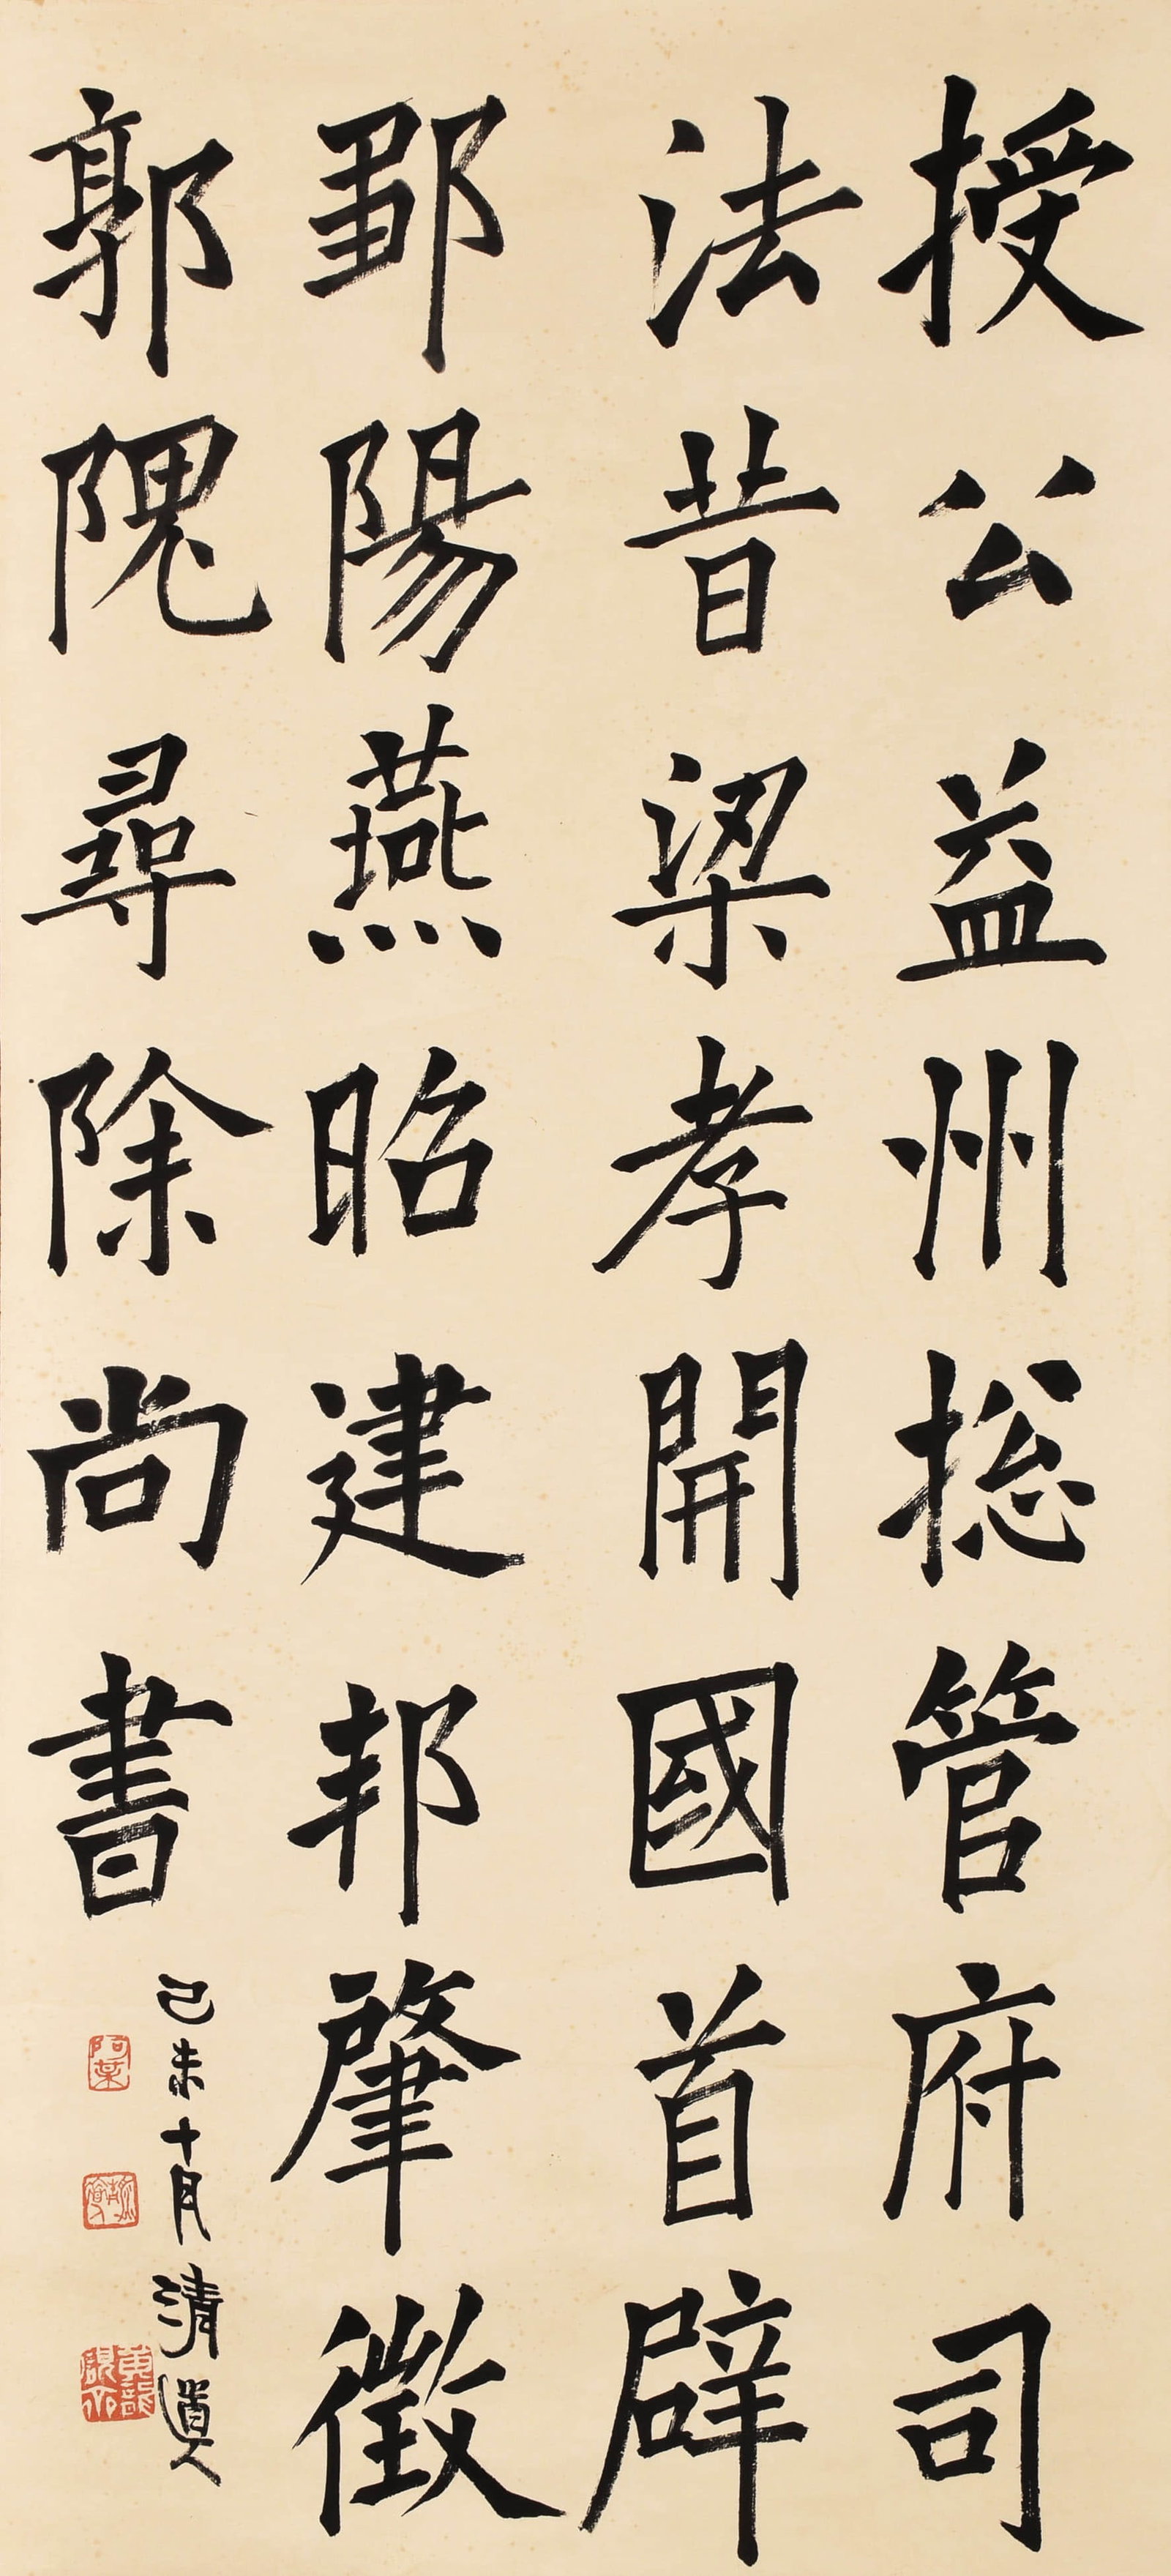 授公益州揔管府司
法昔梁孝開國首辟
鄒陽燕昭建邦肇徵
郭隗尋除尚書
己未十月清道人
阿某